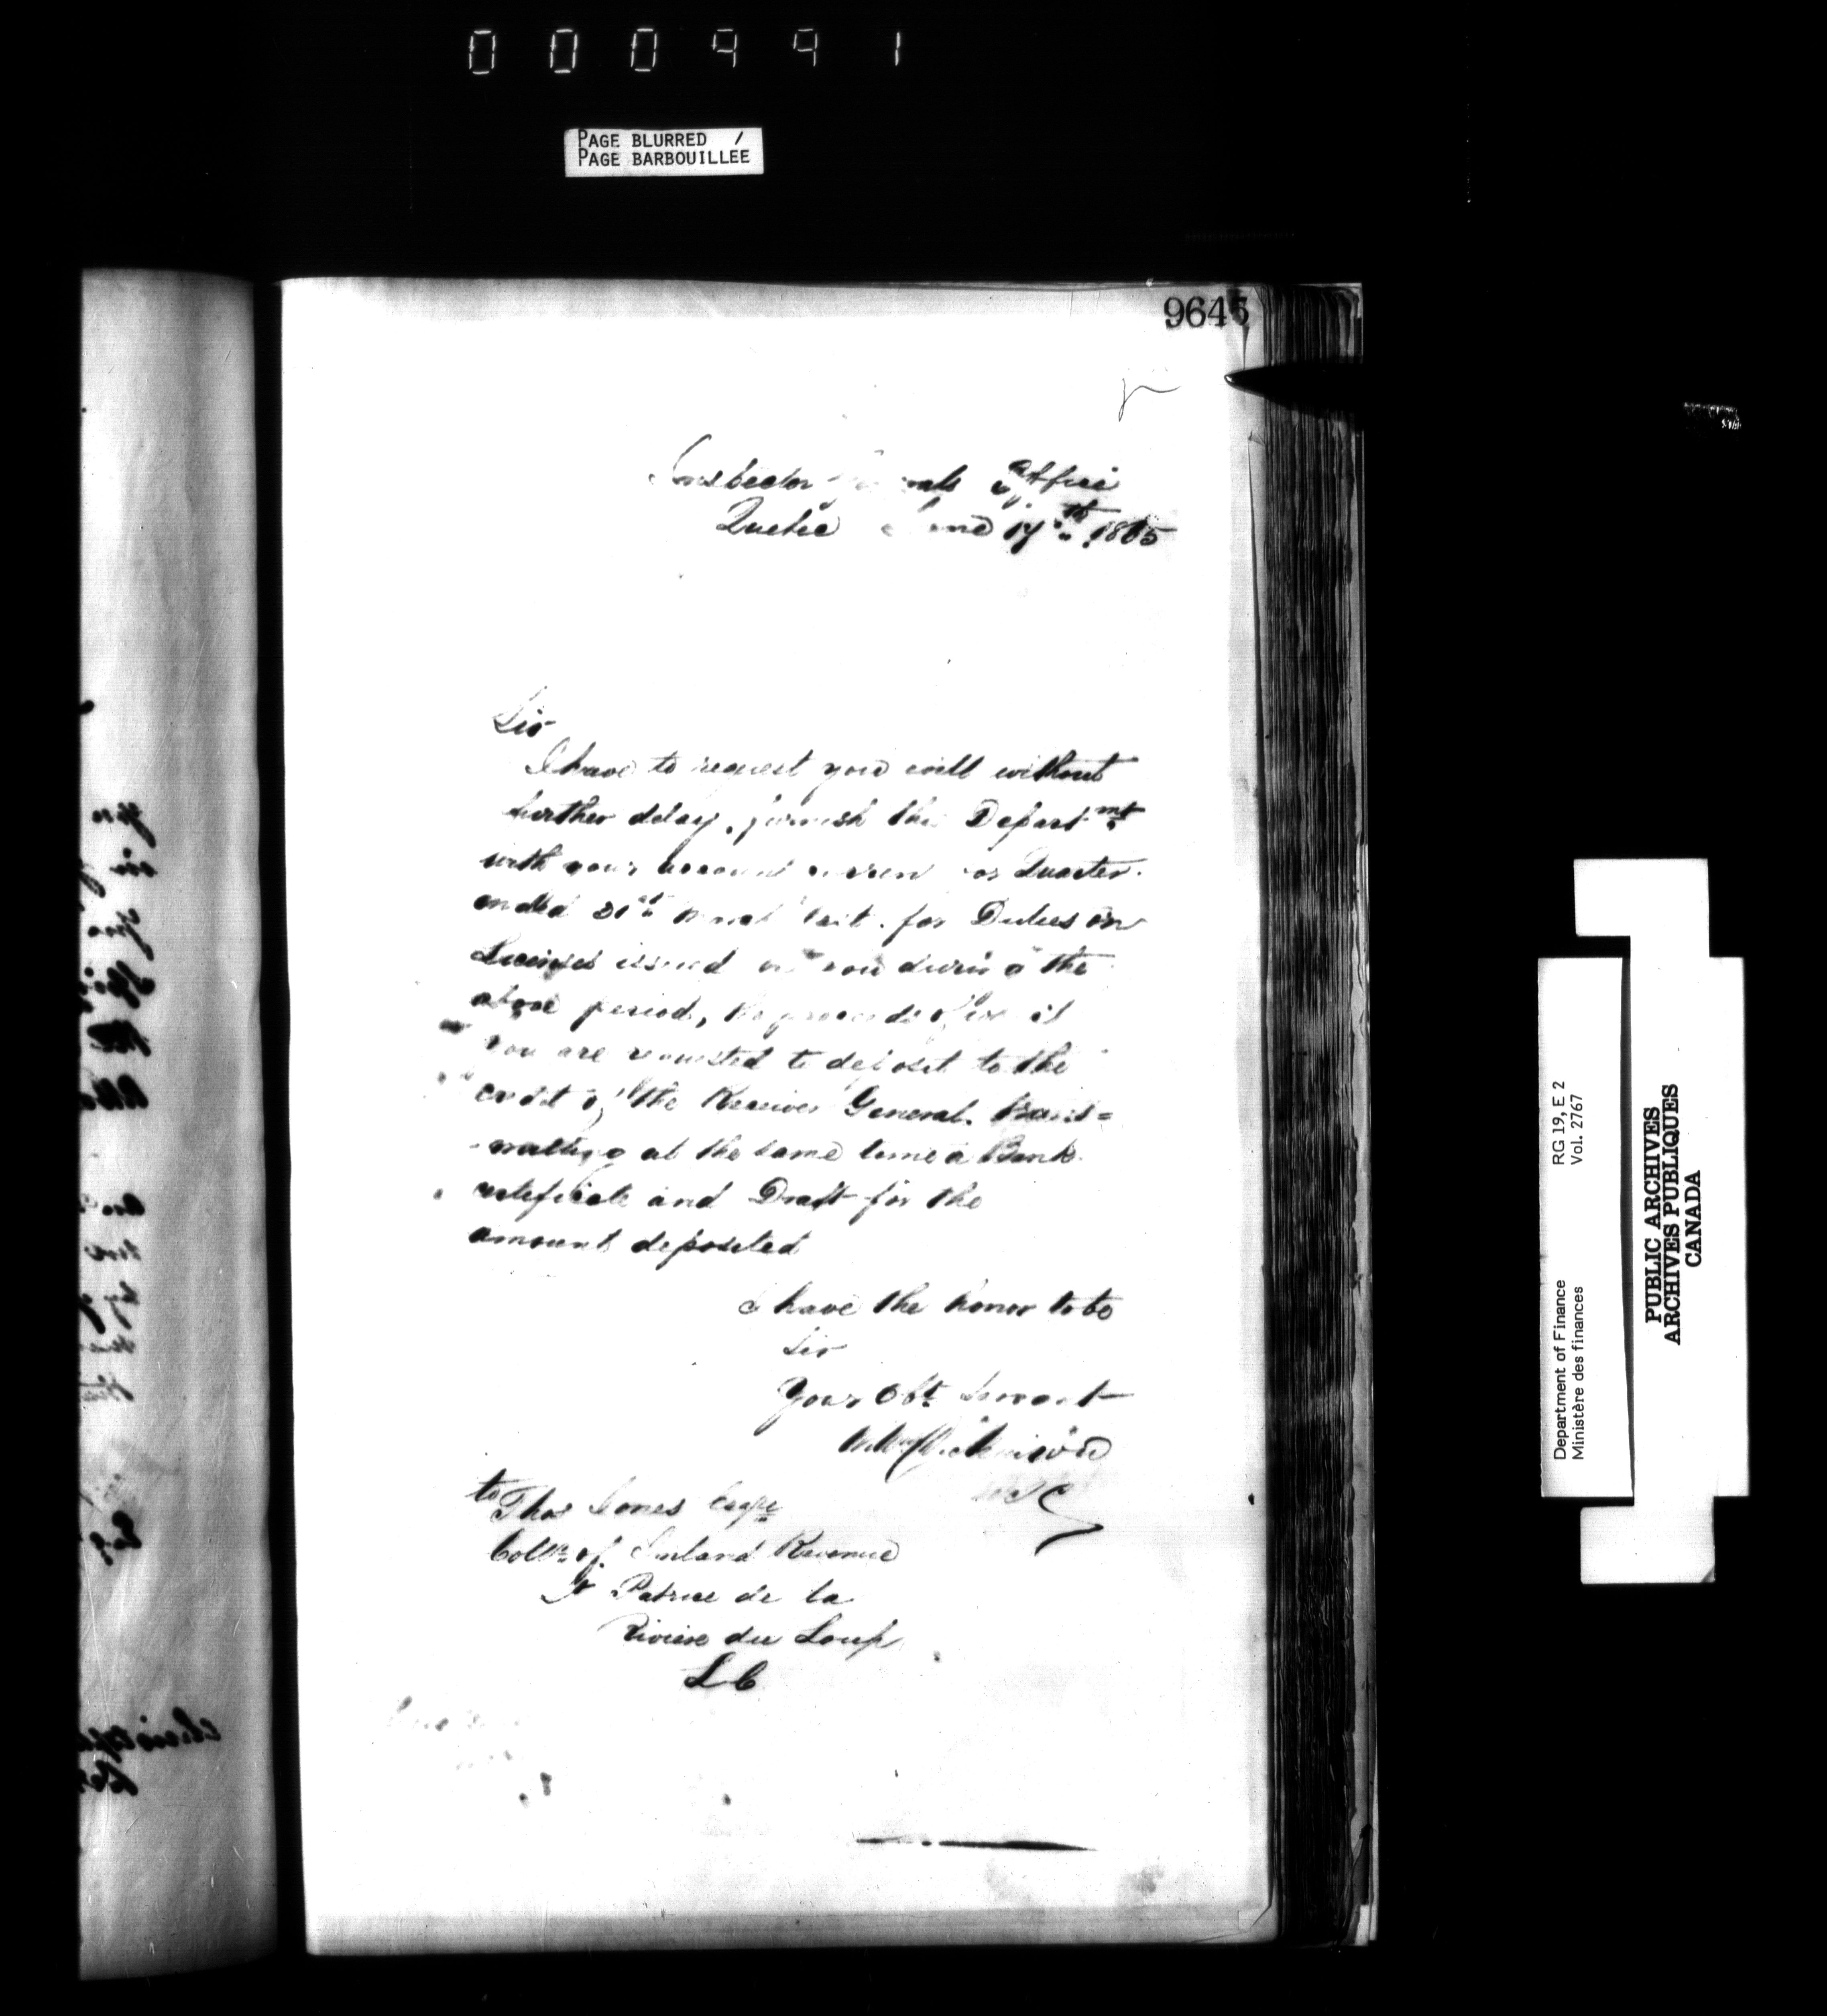 000991
PAGE BLURRED /
PAGE BARBOUILLEE
9645
Inspector Generals Office
Quebec June 17th 1865
Sir
I have to request you will without
further delay, furnish the Departmt
with your account current for Quarter
ended 31st March last. for Duties on
Licenses issued by you during the
above period, the proceeds of which
you are requested to deposit to the
credit of the Receiver General. trans=
-mitting at the same time a Bank
certificate and Draft for the
amount deposited
I have the honor to be
Sir
Your Obt Servant
Wm Dickinson
to Thos Jones Esqre
Collr of Inland Revenue
St Patrice de la
Riviere du Loup
L C
Department of Finance RG 19, E 2
Ministère des finances Vol. 2767
PUBLIC ARCHIVES
ARCHIVES PUBLIQUES
CANADA